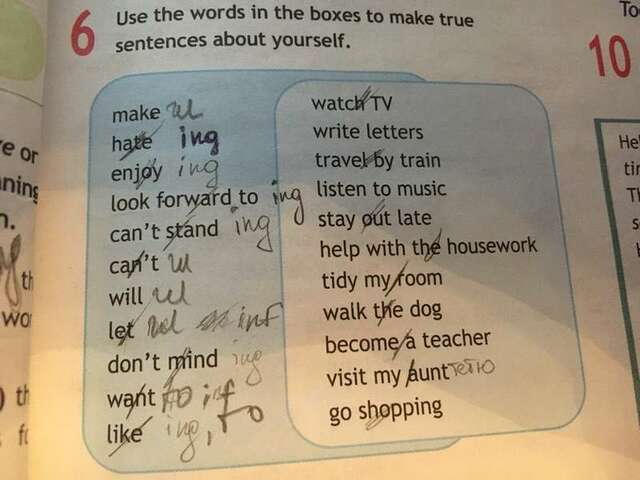 6 Use the words in the boxes to make true
sentences about yourself.
make
hate ing
enjoy ing
look forward to ing
can't stand ing
can't
will
let inf
don't mind ing
want to inf
like ing, to
watch TV
write letters
travel by train
listen to music
stay out late
help with the housework
tidy my room
walk the dog
become a teacher
visit my aunt тетю
go shopping
To
10
e or
ning
n.
th
wo
th
He
tin
Th
s